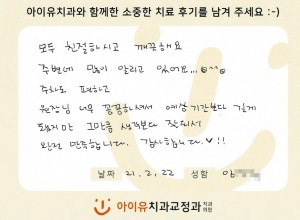 아이유치과와 함께한 소중한 치료 후기를 남겨 주세요 :-)
모두 친절하시고 깨끗해요
주변에 많이 알리고 있어요...
주차도 편하고
원장님 너무 꼼꼼하셔서 예상기간보다 길게
됐지만 그만큼 생각보다 잘돼서
완전 만족합니다. 감사합니다.♡!!
날짜 21. 2. 22 성함
아이유치과교정과 치과의원